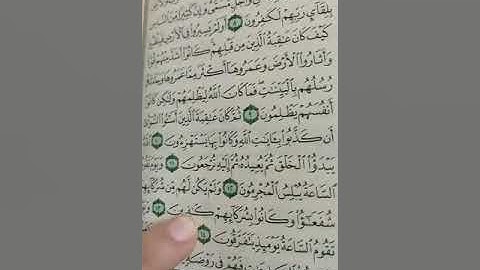 وَأَجَلٍ مُّسَمًّى وَإِنَّ كَثِيرًا مِّنَ ٱلنَّاسِ
بِلِقَآئِ رَبِّهِمْ لَكَٰفِرُونَ ٨ أَوَلَمْ يَسِيرُوا۟ فِى ٱلْأَرْضِ
كَيْفَ كَانَ عَٰقِبَةُ ٱلَّذِينَ مِن قَبْلِهِمْ كَانُوٓا۟ أَشَدَّ مِنْهُمْ
وَأَثَارُوا۟ ٱلْأَرْضَ وَعَمَرُوهَآ أَكْثَرَ مِمَّا عَمَرُوهَا وَجَآءَتْهُمْ
رُسُلُهُم بِٱلْبَيِّنَٰتِ فَمَا كَانَ ٱللَّهُ لِيَظْلِمَهُمْ وَلَٰكِن كَانُوٓا۟
أَنفُسَهُمْ يَظْلِمُونَ ٩ ثُمَّ كَانَ عَٰقِبَةَ ٱلَّذِينَ أَسَٰٓـُٔوا۟ ٱلسُّوٓأَىٰٓ
أَن كَذَّبُوا۟ بِـَٔايَٰتِ ٱللَّهِ وَكَانُوا۟ بِهَا يَسْتَهْزِءُونَ ١٠
يَبْدَؤُا۟ ٱلْخَلْقَ ثُمَّ يُعِيدُهُۥ ثُمَّ إِلَيْهِ تُرْجَعُونَ ١١ وَيَوْمَ
ٱلسَّاعَةُ يُبْلِسُ ٱلْمُجْرِمُونَ ١٢ وَلَمْ يَكُن لَّهُم مِّن شُرَكَآئِهِمْ
شُفَعَٰٓؤُا۟ وَكَانُوا۟ بِشُرَكَآئِهِمْ كَٰفِرِينَ ١٣
تَقُومُ ٱلسَّاعَةُ يَوْمَئِذٍ يَتَفَرَّقُونَ ١٤
فَهُمْ فِى رَوْضَةٍ